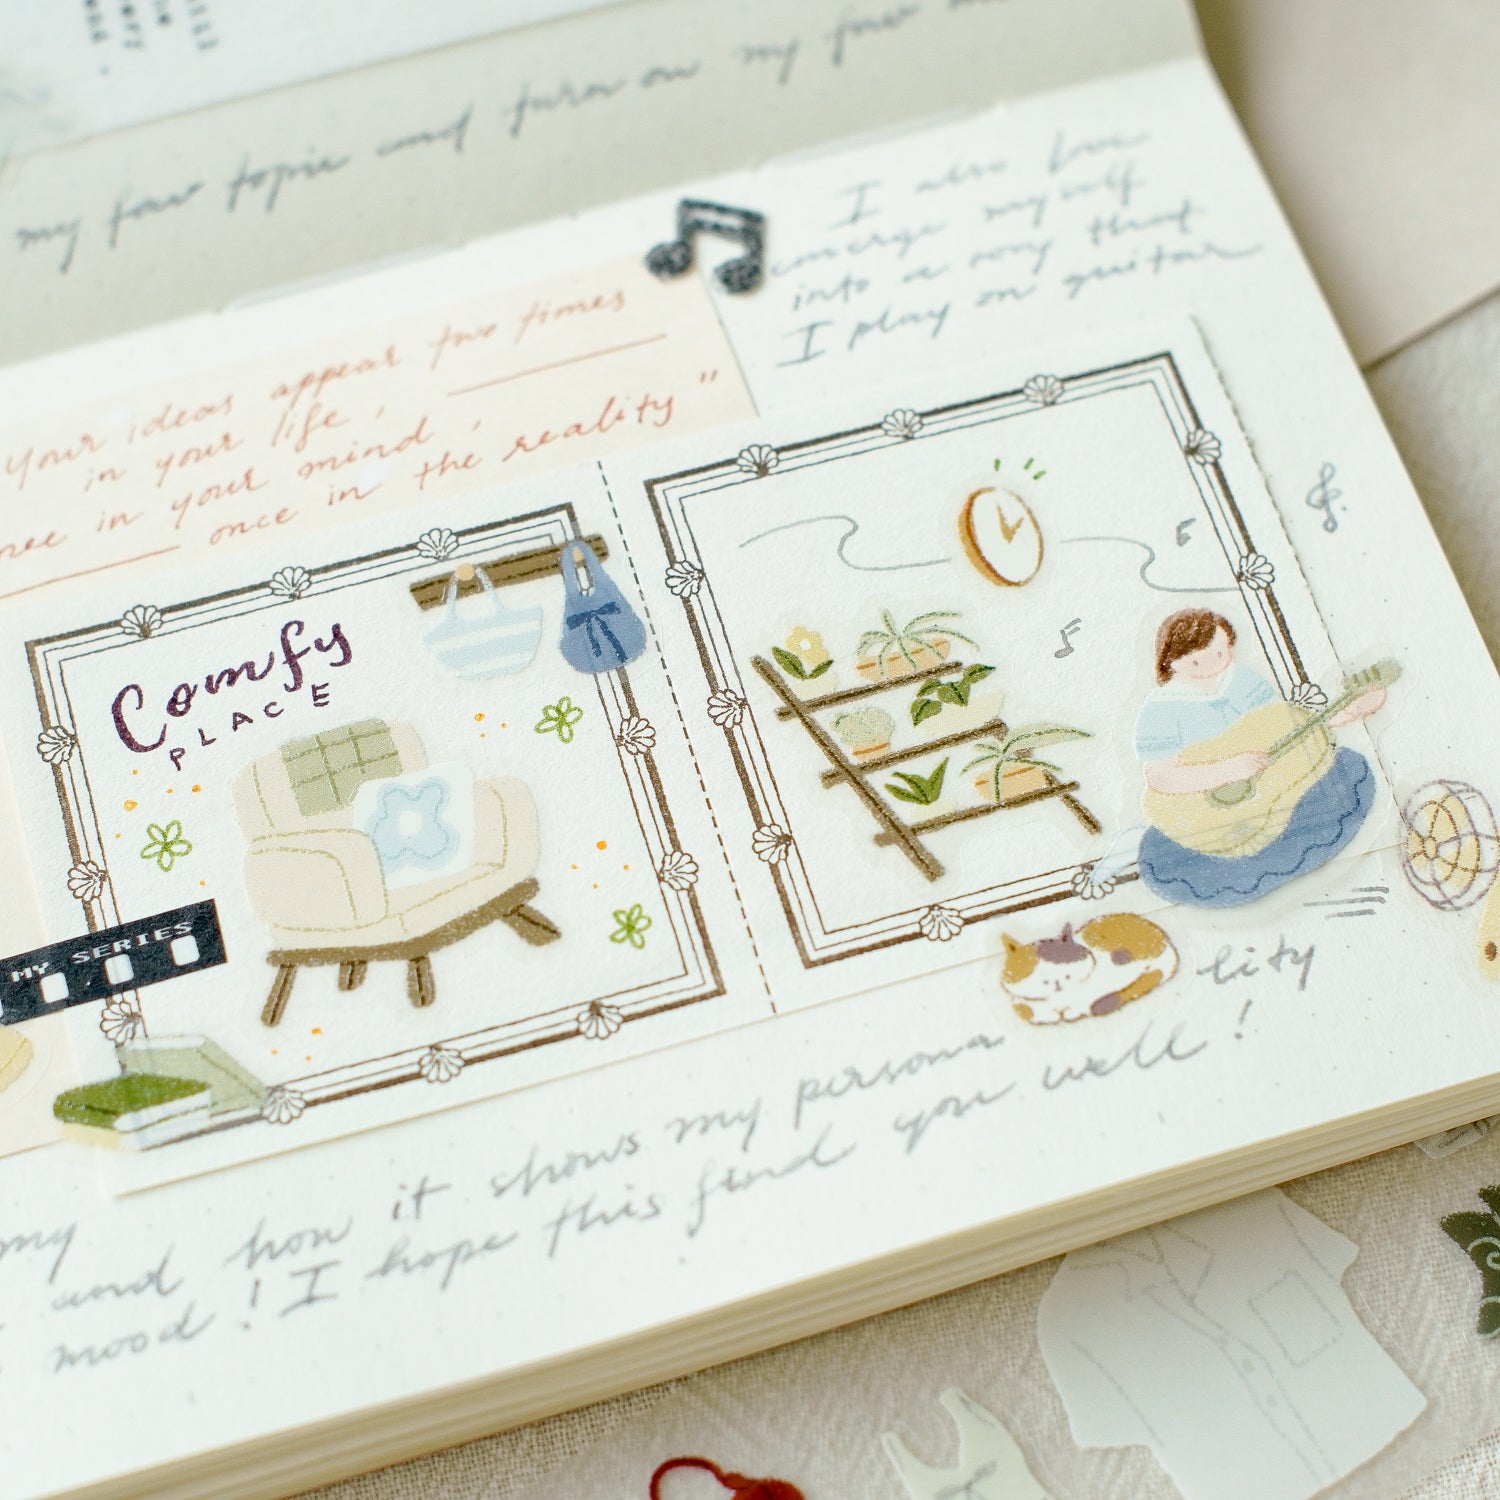 my fow topic and turn on my fow
I also love
emerge myself
into a song that
I play on guitar
Your ideas appear two times
in your life,
in your mind,
once in the reality"
Comfy
PLACE
MY SERIES
my
and how it shows my persona lity
mood! I hope this find you well!